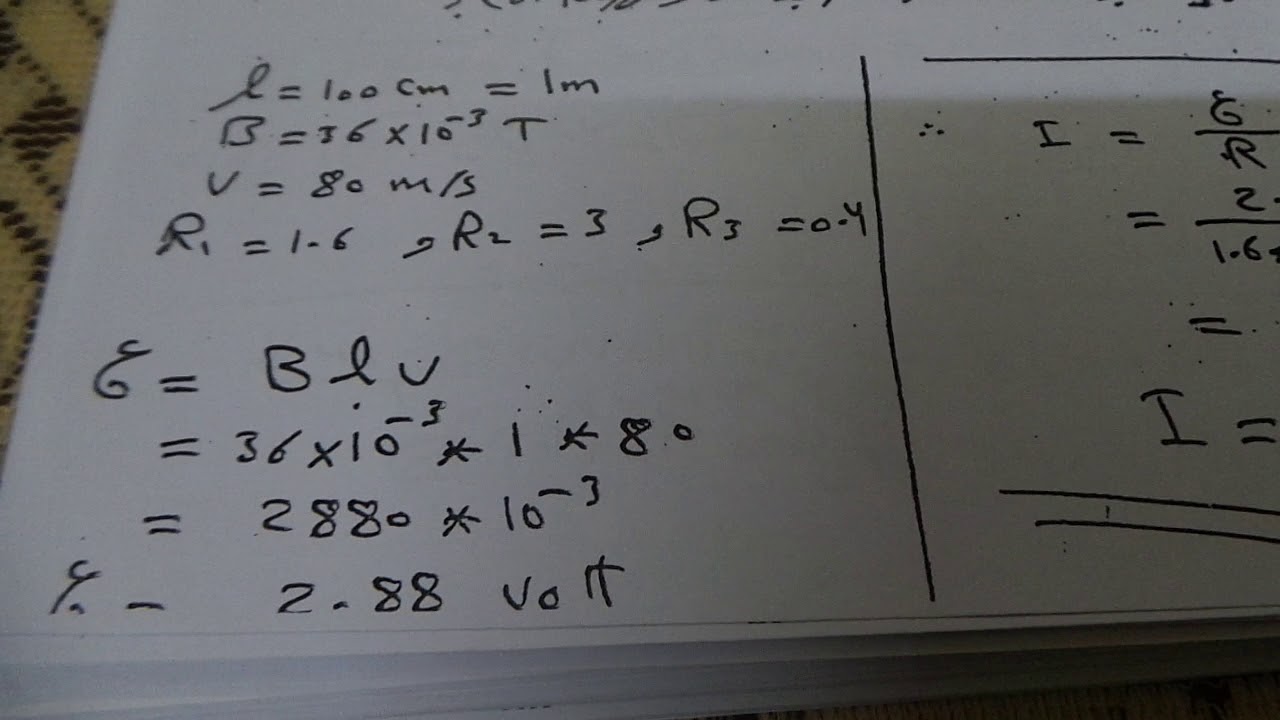 l = 100 cm = 1m
B = 36 × 10⁻³ T
v = 80 m/s
R₁ = 1.6 , R₂ = 3 , R₃ = 0.4
ε = B l v
= 36×10⁻³ * 1 * 80
= 2880 * 10⁻³
ε - 2.88 volt
∴ I = ε/R
= 2./1.6+
=
I =